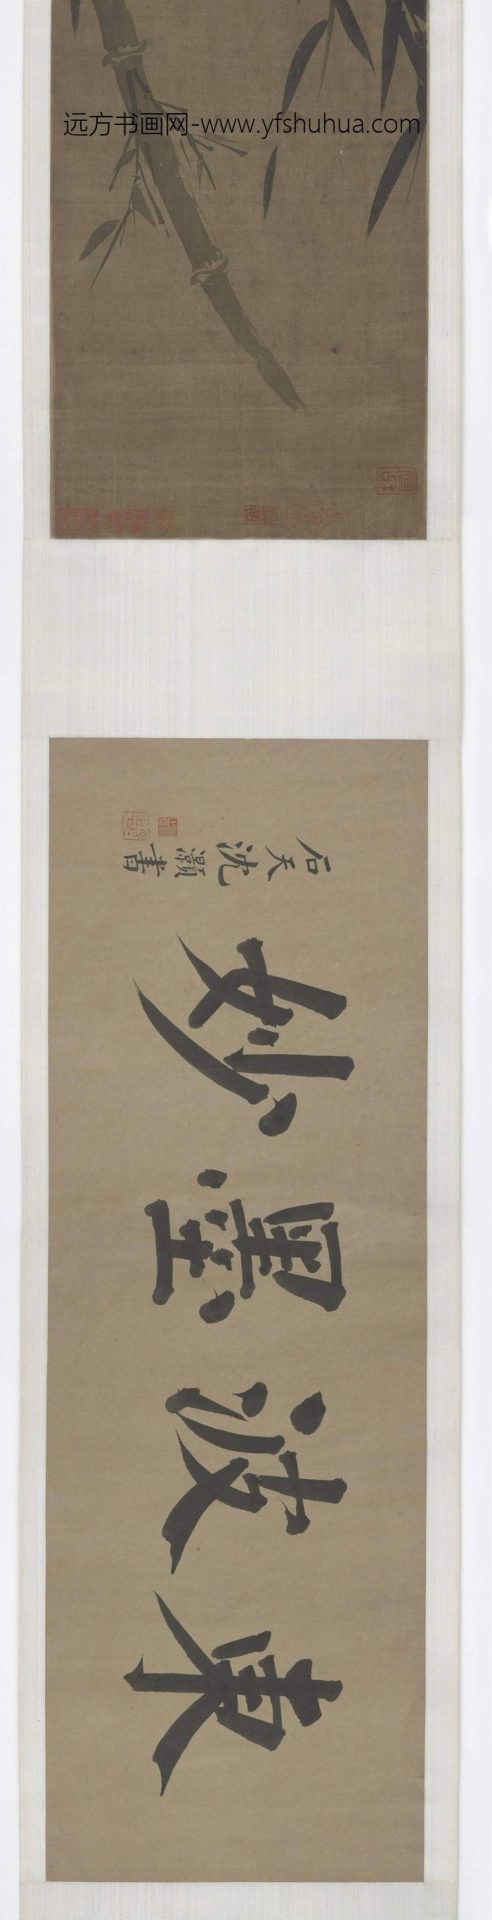 远方书画网-www.yfshuhua.com
東波墨妙
石天沈灝書